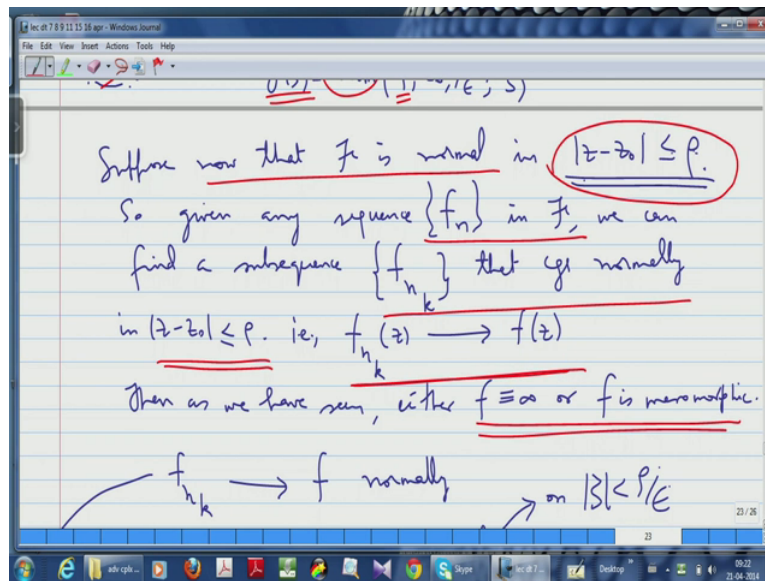 lec dt 7 8 9 11 15 16 apr - Windows Journal
File Edit View Insert Actions Tools Help
Suppose now that ℱ is normal in |z-z₀| ≤ ρ.
So given any sequence {fₙ} in ℱ, we can
find a subsequence {f_{n_k}} that cgs normally
in |z-z₀| ≤ ρ. ie, f_{n_k}(z) ⟶ f(z)
Then as we have seen, either f ≡ ∞ or f is meromorphic.
f_{n_k} ⟶ f normally
on |ζ| < ρ/ϵ
23 / 26
23
adv cplx ...
Skype
lec dt 7 ...
Desktop
09:22
21-04-2014